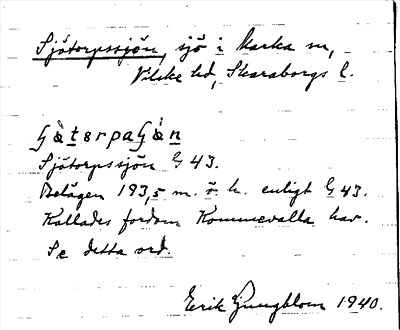 Sjötorpssjön, sjö i Marka sn,
Vilske hd, Skaraborgs l.
Sjötorpssjön G 43.
Belägen 193,5 m. ö. h. enligt G 43.
Kallades fordom Kommevalla hav.
Se detta ord.
Erik Ljungblom 1940.